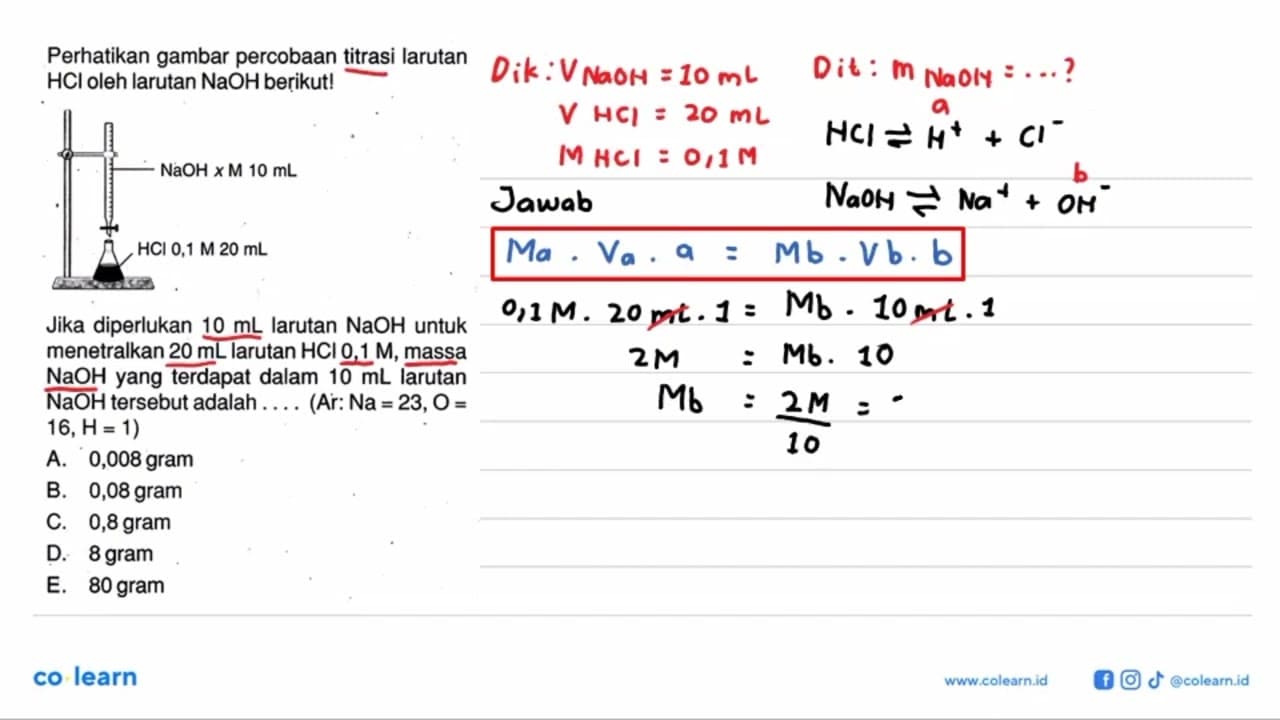 Perhatikan gambar percobaan titrasi larutan
HCl oleh larutan NaOH berikut!
NaOH x M 10 mL
HCl 0,1 M 20 mL
Jika diperlukan 10 mL larutan NaOH untuk
menetralkan 20 mL larutan HCl 0,1 M, massa
NaOH yang terdapat dalam 10 mL larutan
NaOH tersebut adalah . . . . (Ar: Na = 23, O =
16, H = 1)
A. 0,008 gram
B. 0,08 gram
C. 0,8 gram
D. 8 gram
E. 80 gram
Dik : V NaOH = 10 mL
V HCl = 20 mL
M HCl = 0,1 M
Dit : m NaOH = ... ?
a
HCl ⇌ H⁺ + Cl⁻
b
NaOH ⇌ Na⁺ + OH⁻
Jawab
Ma . Va . a = Mb . Vb . b
0,1 M . 20 mL . 1 = Mb . 10 mL . 1
2M = Mb . 10
Mb = 2M/10 =
co learn
www.colearn.id
@colearn.id